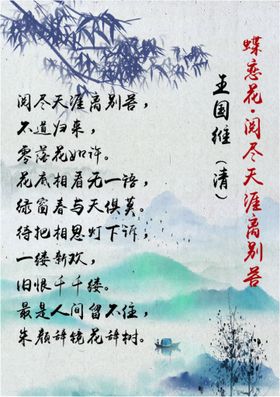 蝶恋花·阅尽天涯离别苦
王国维（清）
阅尽天涯离别苦，
不道归来，
零落花如许。
花底相看无一语，
绿窗春与天俱莫。
待把相思灯下诉，
一缕新欢，
旧恨千千缕。
最是人间留不住，
朱颜辞镜花辞树。